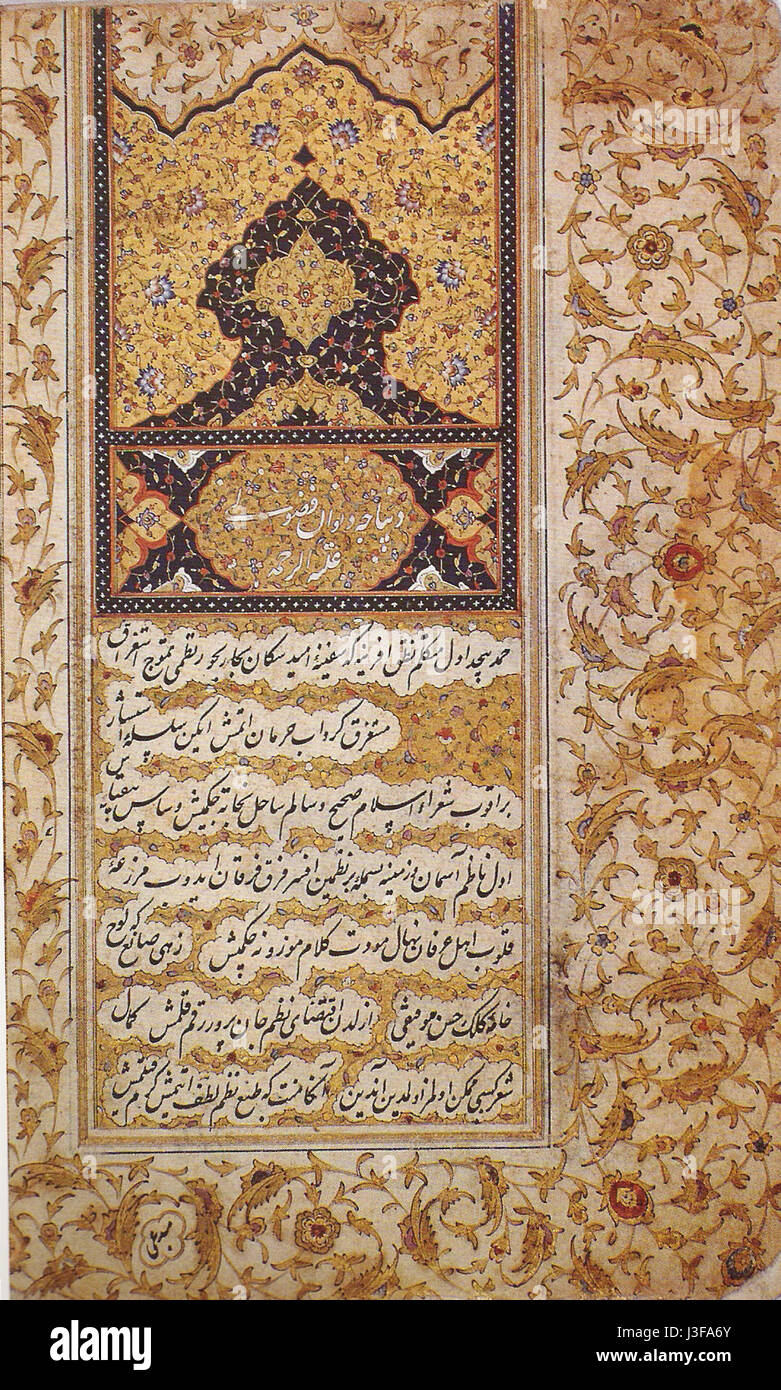 دیباجه دیوان فضولی
علیه الرحمه
حمد بیحد اول متکلم نطق آفرینه که سفینهٔ امید سکان بحار بحور نظمی تموج استغراق
مستغرق گرداب حرمان ایتمش ایکن سلسلهٔ استثنا
براقوب شعراء اسلام صحیح و سالم ساحل نجاته چکمیش و سپاس بیقیاس
اول ناظم آسمان و زمینه بسمله بر نظمین افسر فرق فرقان ایدوب مزرعهٔ
قلوب اهل عرفانه نهال مودت کلام موزونه چکمیش زهی صانع که لوح
خاطره کلک حسن توفیقی ازلدن اقتضای نظم جان پرور رقم قلمش کمال
شعر کسبی ممکن اولمز اولدین آندین آنکا منت که طبع نظم لطف ایتمیش کرم قلمیش
alamy
alamy
Image ID: J3FA6Y
www.alamy.com